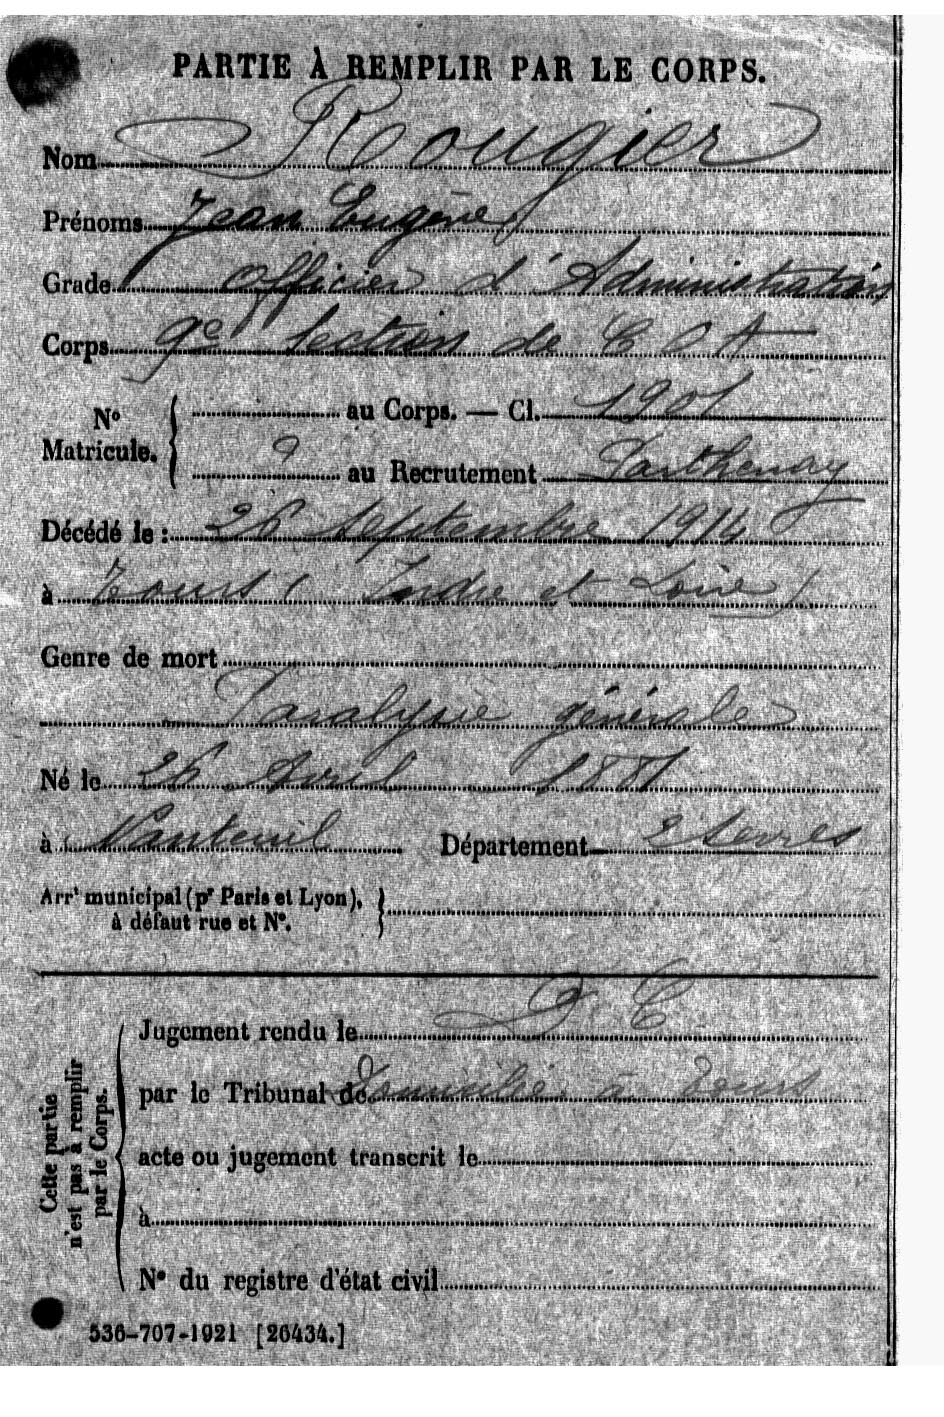 PARTIE À REMPLIR PAR LE CORPS.
Nom Rougier
Prénoms Jean Eugène
Grade Officier d'Administration
Corps 9e Section de C O A
No Matricule. { au Corps. — Cl. 1901
9 au Recrutement Parthenay
Décédé le : 26 Septembre 1914
à Tours ( Indre et Loire )
Genre de mort
Paralysie générale
Né le 26 Avril 1881
à Vanteuil Département 2 Sevres
Arrt municipal (pr Paris et Lyon),
à défaut rue et No. }
Cette partie n'est pas à remplir par le Corps.
Jugement rendu le
par le Tribunal de Domicilié à Tours
acte ou jugement transcrit le
à
No du registre d'état civil
536-707-1921 [26434.]